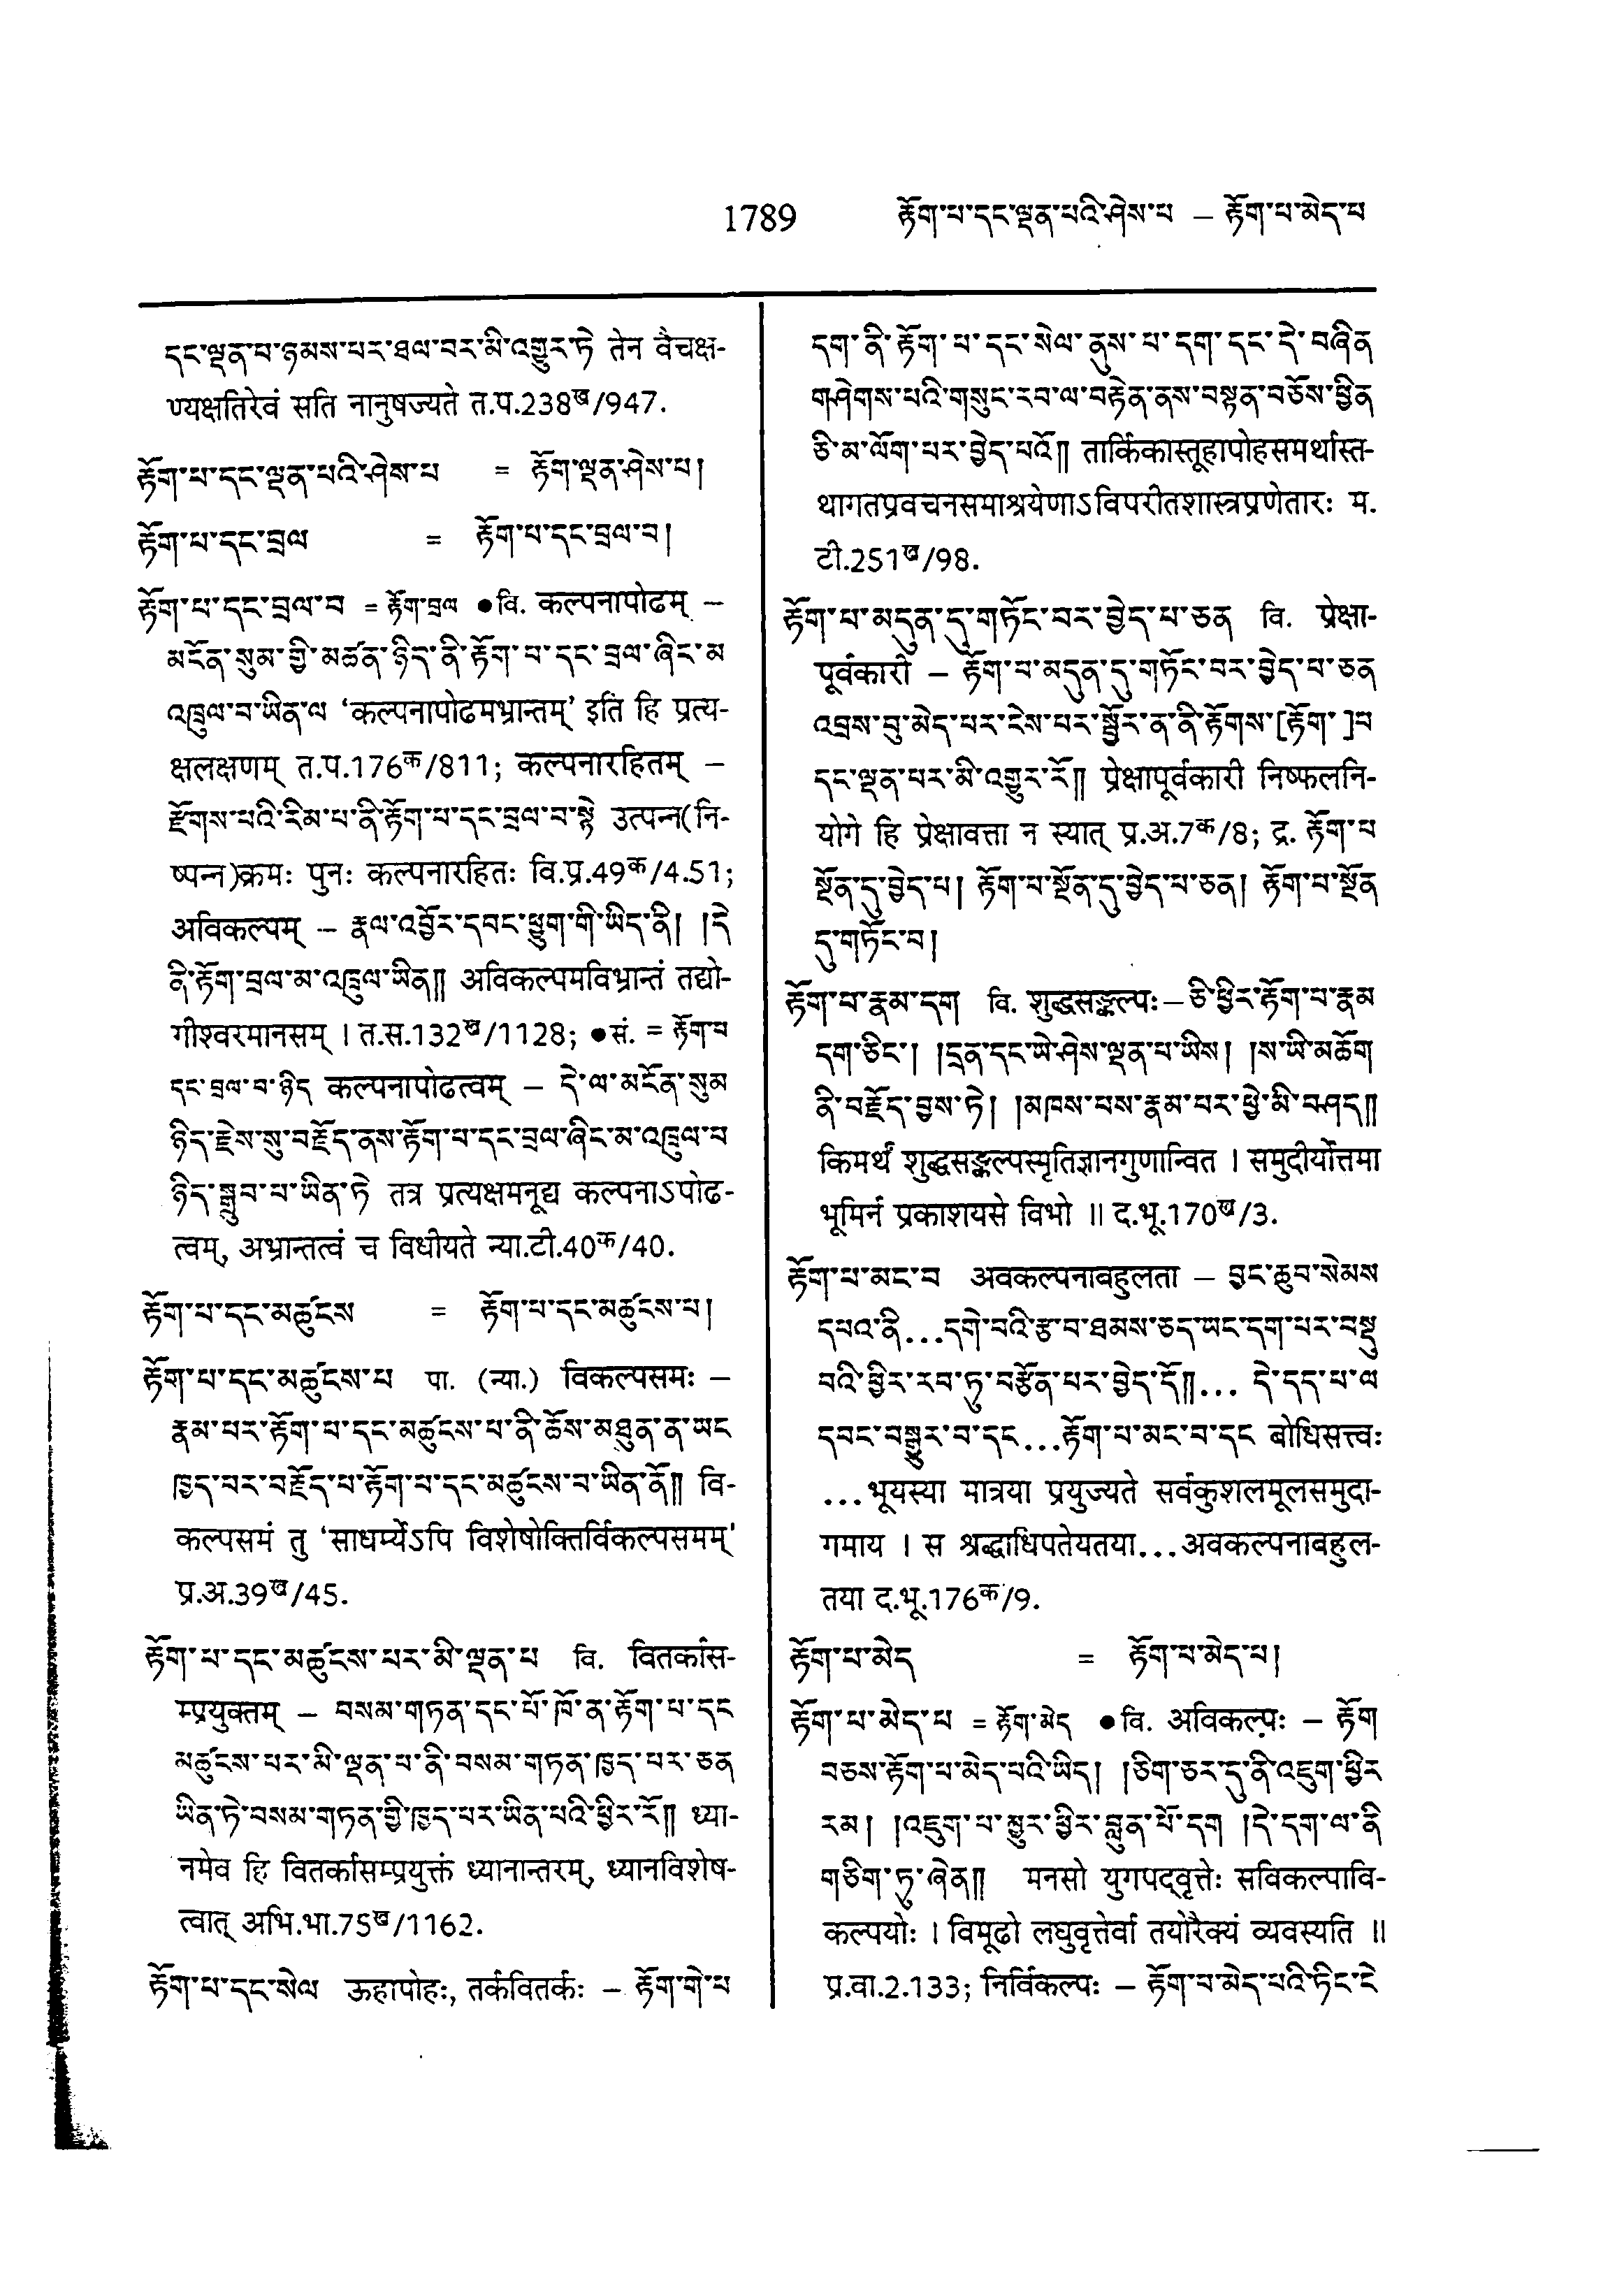 1789 རྟོག་པ་དང་ལྡན་པའི་ཤེས་པ – རྟོག་པ་མེད་པ
དང་ལྡན་པ་ཉམས་པར་ཐལ་བར་མི་འགྱུར་ཏེ तेन वैचक्ष-
ण्यक्षतिरेवं सति नानुषज्यते त.प.238ख/947.
རྟོག་པ་དང་ལྡན་པའི་ཤེས་པ = རྟོག་ལྡན་ཤེས་པ།
རྟོག་པ་དང་བྲལ = རྟོག་པ་དང་བྲལ་བ།
རྟོག་པ་དང་བྲལ་བ = རྟོག་བྲལ ●वि. कल्पनापोढम् –
མངོན་སུམ་གྱི་མཚན་ཉིད་ནི་རྟོག་པ་དང་བྲལ་ཞིང་མ
འཁྲུལ་བ་ཡིན་ལ ‘कल्पनापोढमभ्रान्तम्’ इति हि प्रत्य-
क्षलक्षणम् त.प.176क/811; कल्पनारहितम् –
རྫོགས་པའི་རིམ་པ་ནི་རྟོག་པ་དང་བྲལ་བ་སྟེ उत्पन्न(नि-
ष्पन्न)क्रमः पुनः कल्पनारहितः वि.प्र.49क/4.51;
अविकल्पम् – རྣལ་འབྱོར་དབང་ཕྱུག་གི་ཡིད་ནི། །དེ
ནི་རྟོག་བྲལ་མ་འཁྲུལ་ཡིན༎ अविकल्पमविभ्रान्तं तद्यो-
गीश्वरमानसम् । त.स.132ख/1128; ●सं. = རྟོག་པ
དང་བྲལ་བ་ཉིད कल्पनापोढत्वम् – དེ་ལ་མངོན་སུམ
ཉིད་རྗེས་སུ་བརྗོད་ནས་རྟོག་པ་དང་བྲལ་ཞིང་མ་འཁྲུལ་པ
ཉིད་སྒྲུབ་པ་ཡིན་ཏེ तत्र प्रत्यक्षमनूद्य कल्पनाऽपोढ-
त्वम्, अभ्रान्तत्वं च विधीयते न्या.टी.40क/40.
རྟོག་པ་དང་མཚུངས = རྟོག་པ་དང་མཚུངས་པ།
རྟོག་པ་དང་མཚུངས་པ पा. (न्या.) विकल्पसमः –
རྣམ་པར་རྟོག་པ་དང་མཚུངས་པ་ནི་ཆོས་མཐུན་ན་ཡང
ཁྱད་པར་བརྗོད་པ་རྟོག་པ་དང་མཚུངས་པ་ཡིན་ནོ༎ वि-
कल्पसमं तु ‘साधर्म्येऽपि विशेषोक्तिर्विकल्पसमम्’
प्र.अ.39ख/45.
རྟོག་པ་དང་མཚུངས་པར་མི་ལྡན་པ वि. वितर्कास-
म्प्रयुक्तम् – བསམ་གཏན་དང་པོ་ཁོ་ན་རྟོག་པ་དང
མཚུངས་པར་མི་ལྡན་པ་ནི་བསམ་གཏན་ཁྱད་པར་ཅན
ཡིན་ཏེ་བསམ་གཏན་གྱི་ཁྱད་པར་ཡིན་པའི་ཕྱིར་རོ༎ ध्या-
नमेव हि वितर्कासम्प्रयुक्तं ध्यानान्तरम्, ध्यानविशेष-
त्वात् अभि.भा.75ख/1162.
རྟོག་པ་དང་སེལ ऊहापोहः, तर्कवितर्कः – རྟོག་གེ་པ
དག་ནི་རྟོག་པ་དང་སེལ་ནུས་པ་དག་དང་དེ་བཞིན
གཤེགས་པའི་གསུང་རབ་ལ་བརྟེན་ནས་བསྟན་བཅོས་ཕྱིན
ཅི་མ་ལོག་པར་བྱེད་པའོ༎ तार्किकास्तूहापोहसमर्थास्त-
थागतप्रवचनसमाश्रयेणाऽविपरीतशास्त्रप्रणेतारः म.
टी.251ख/98.
རྟོག་པ་མདུན་དུ་གཏོང་བར་བྱེད་པ་ཅན वि. प्रेक्षा-
पूर्वकारी – རྟོག་པ་མདུན་དུ་གཏོང་བར་བྱེད་པ་ཅན
འབྲས་བུ་མེད་པར་ངེས་པར་སྦྱོར་ན་ནི་རྟོགས་[རྟོག་]པ
དང་ལྡན་པར་མི་འགྱུར་རོ༎ प्रेक्षापूर्वकारी निष्फलनि-
योगे हि प्रेक्षावत्ता न स्यात् प्र.अ.7क/8; द्र. རྟོག་པ
སྔོན་དུ་བྱེད་པ། རྟོག་པ་སྔོན་དུ་བྱེད་པ་ཅན། རྟོག་པ་སྔོན
དུ་གཏོང་བ།
རྟོག་པ་རྣམ་དག वि. शुद्धसङ्कल्पः – ཅི་ཕྱིར་རྟོག་པ་རྣམ
དག་ཅིང་། །དྲན་དང་ཡེ་ཤེས་ལྡན་པ་ཡིས། །ས་ཡི་མཆོག
ནི་བརྗོད་བྱས་ཏེ། །མཁས་པས་རྣམ་པར་ཕྱེ་མི་བཤད༎
किमर्थं शुद्धसङ्कल्पस्मृतिज्ञानगुणान्वित । समुदीर्योत्तमा
भूमिर्न प्रकाशयसे विभो ॥ द.भू.170ख/3.
རྟོག་པ་མང་བ अवकल्पनाबहुलता – བྱང་ཆུབ་སེམས
དཔའ་ནི...དགེ་བའི་རྩ་བ་ཐམས་ཅད་ཡང་དག་པར་བསྡུ
བའི་ཕྱིར་རབ་ཏུ་བརྩོན་པར་བྱེད་དོ༎... དེ་དད་པ་ལ
དབང་བསྒྱུར་བ་དང...རྟོག་པ་མང་བ་དང बोधिसत्त्वः
...भूयस्या मात्रया प्रयुज्यते सर्वकुशलमूलसमुदा-
गमाय । स श्रद्धाधिपतेयतया...अवकल्पनाबहुल-
तया द.भू.176क/9.
རྟོག་པ་མེད = རྟོག་པ་མེད་པ།
རྟོག་པ་མེད་པ = རྟོག་མེད ●वि. अविकल्पः – རྟོག
བཅས་རྟོག་པ་མེད་པའི་ཡིད། །ཅིག་ཅར་དུ་ནི་འཇུག་ཕྱིར
རམ། །འཇུག་པ་མྱུར་ཕྱིར་བླུན་པོ་དག །དེ་དག་ལ་ནི
གཅིག་ཏུ་ཞེན༎ मनसो युगपद्वृत्तेः सविकल्पावि-
कल्पयोः । विमूढो लघुवृत्तेर्वा तयोरैक्यं व्यवस्यति ॥
प्र.वा.2.133; निर्विकल्पः – རྟོག་པ་མེད་པའི་ཏིང་ངེ